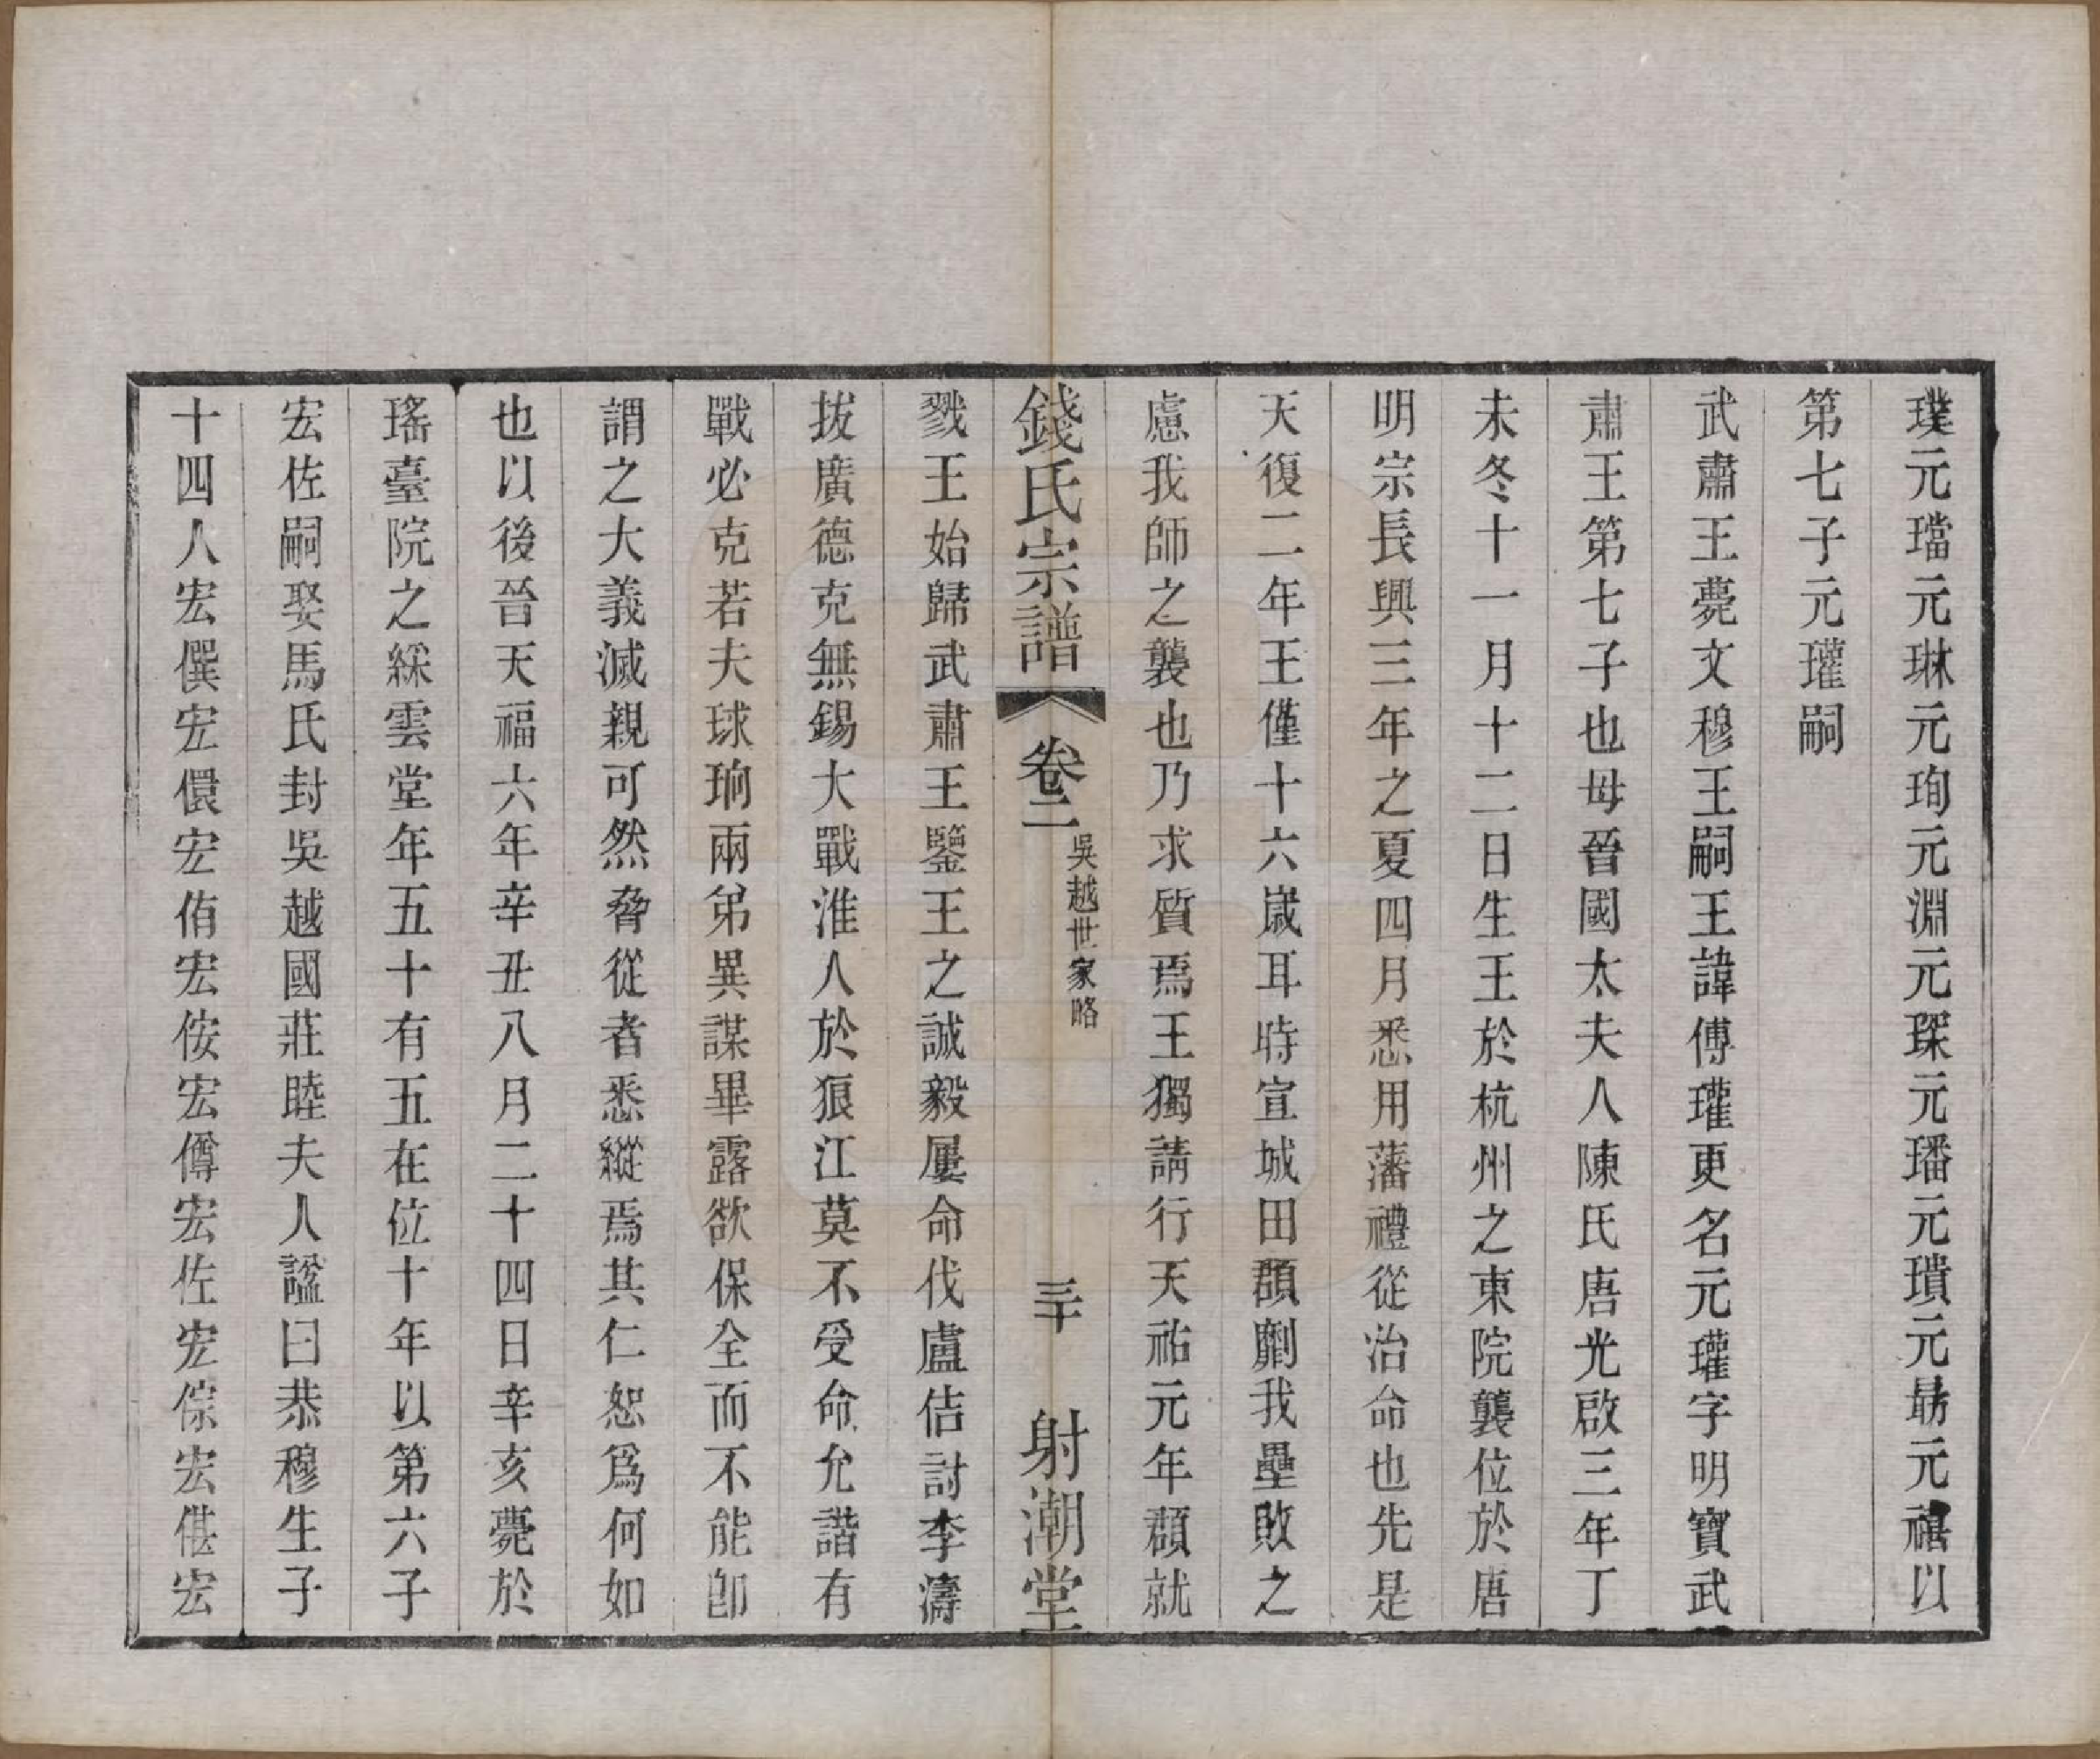 璞元璫元琳元珣元淵元琛元璠元璝元勗元禧以
第七子元瓘嗣
武肅王薨文穆王嗣王諱傅瓘更名元瓘字明寶武
肅王第七子也母晉國太夫人陳氏唐光啟三年丁
未冬十一月十二日生王於杭州之東院襲位於唐
明宗長興三年之夏四月悉用藩禮從治命也先是
天復二年王僅十六歲耳時宣城田頵劘我壘敗之
慮我師之襲也乃求質焉王獨請行天祐元年頵就
錢氏宗譜 卷二 吳越世家略 三十 射潮堂
戮王始歸武肅王鑒王之誠毅屢命伐盧佶討李濤
拔廣德克無錫大戰淮人於狼江莫不受命允諧有
戰必克若夫球珦兩弟異謀畢露欲保全而不能卽
謂之大義滅親可然脅從者悉縱焉其仁恕爲何如
也以後晉天福六年辛丑八月二十四日辛亥薨於
瑤臺院之綵雲堂年五十有五在位十年以第六子
宏佐嗣娶馬氏封吳越國莊睦夫人諡曰恭穆生子
十四人宏僎宏儇宏侑宏侒宏僔宏佐宏倧宏偡宏